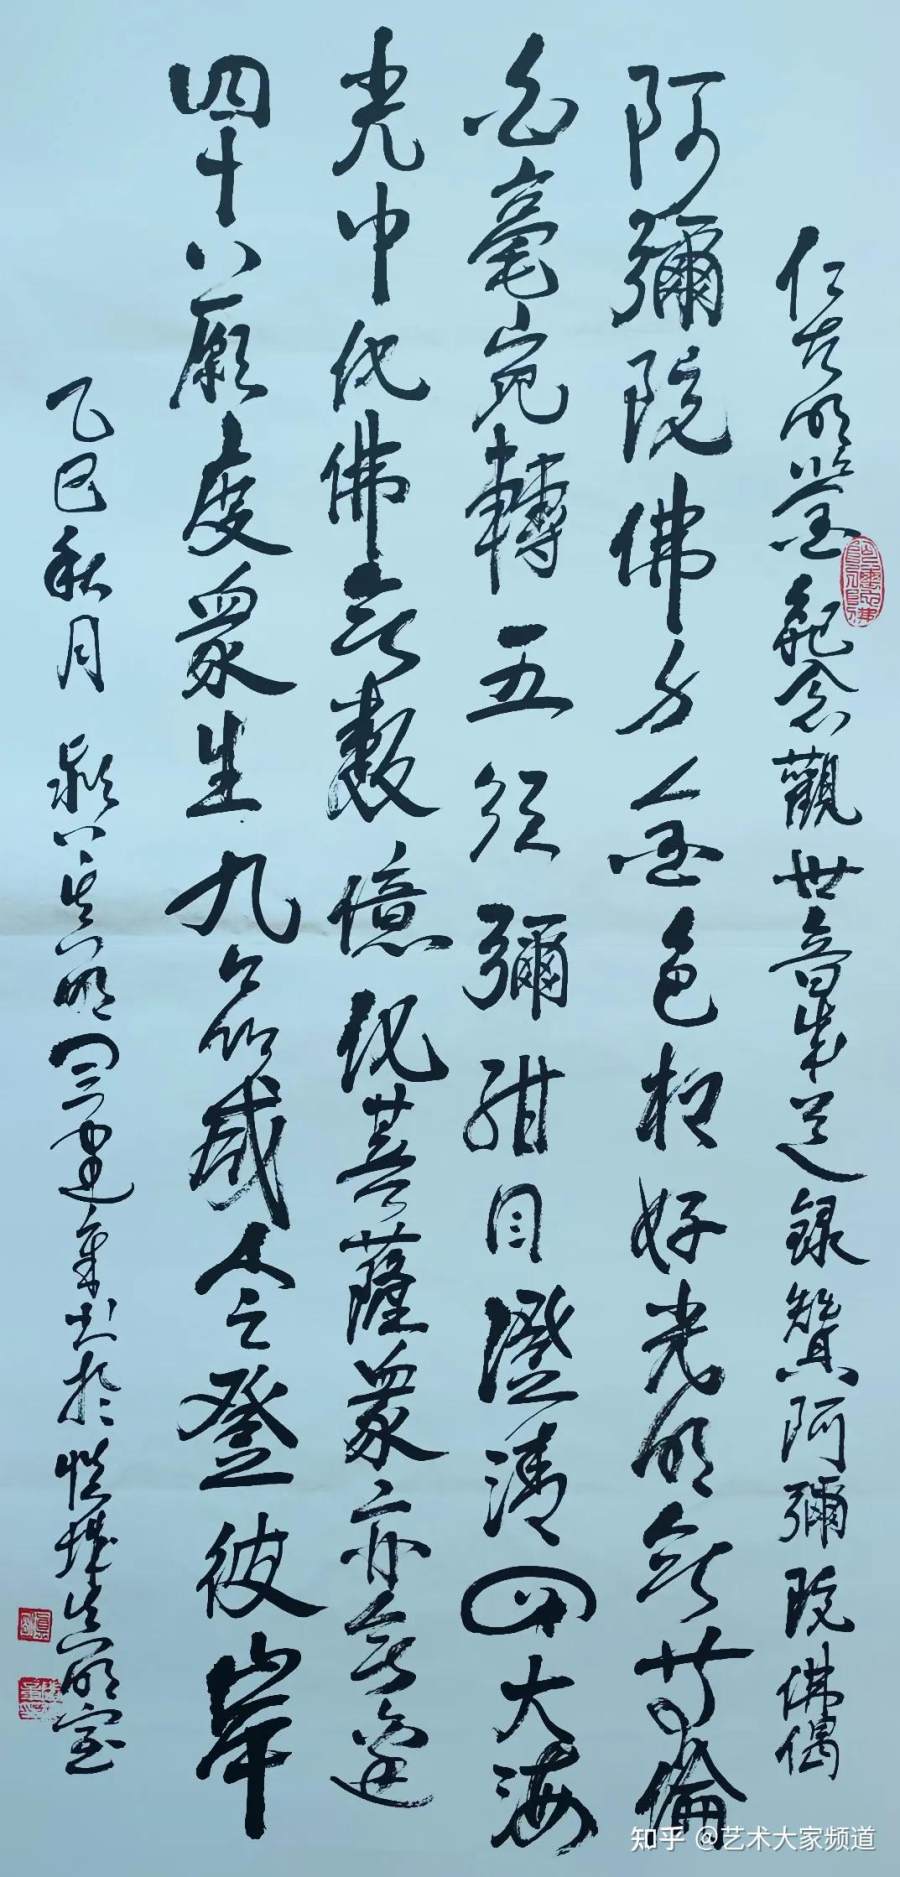 仁者明鉴纪念觀世音成道録贊阿彌陀佛偈
阿彌陀佛身金色相好光明無等倫
白毫宛轉五須彌紺目澄清四大海
光中化佛無數億化菩薩衆亦無邊
四十八願度衆生九品咸令登彼岸
乙巳秋月 書於 室
知乎 @艺术大家频道